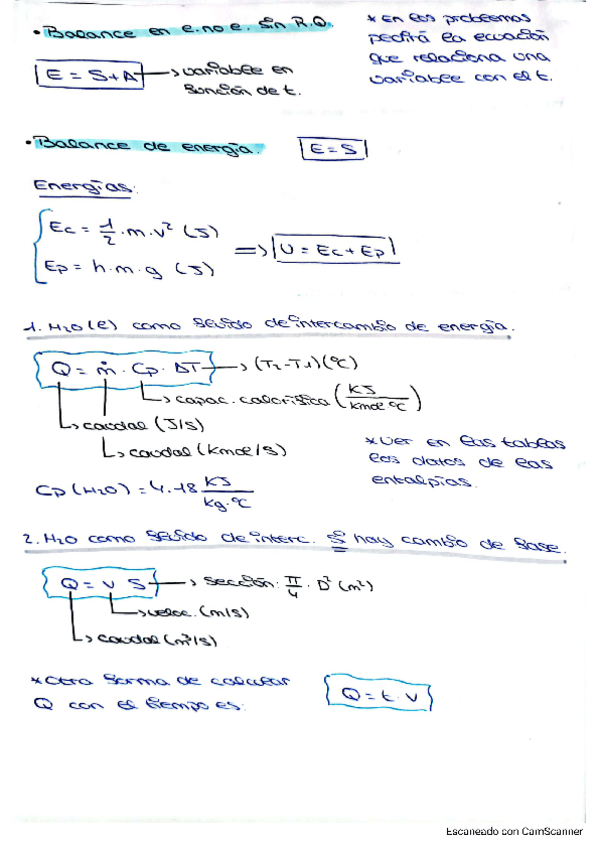 • Balance en e. no e. sin R.Q.
* En los problemas
pedirá la ecuación
que relaciona una
variable con el t.
E = S + A → variable en
función de t.
• Balance de energía. E = S
Energías:
Ec = 1/2 · m · v² (J)
Ep = h · m · g (J)
=> U = Ec + Ep
1. H2O (l) como fluido de intercambio de energía.
Q = ṁ · Cp · ΔT → (T2 - T1) (ºC)
capac. calorífica (KJ / kmol ºC)
caudal (J/s)
caudal (kmol/s)
* Ver en las tablas
los datos de las
entalpías.
Cp (H2O) = 4.18 KJ / kg · ºC
2. H2O como fluido de interc. Sí hay cambio de fase.
Q = v S → sección: π/4 · D² (m²)
veloc. (m/s)
caudal (m³/s)
* Otra forma de calcular
Q con el tiempo es:
Q = t · v
Escaneado con CamScanner